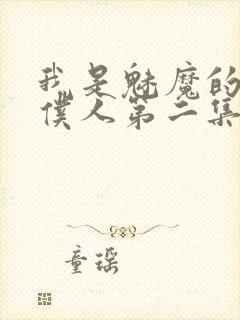 我是魅魔的
仆人第二集
童瑶